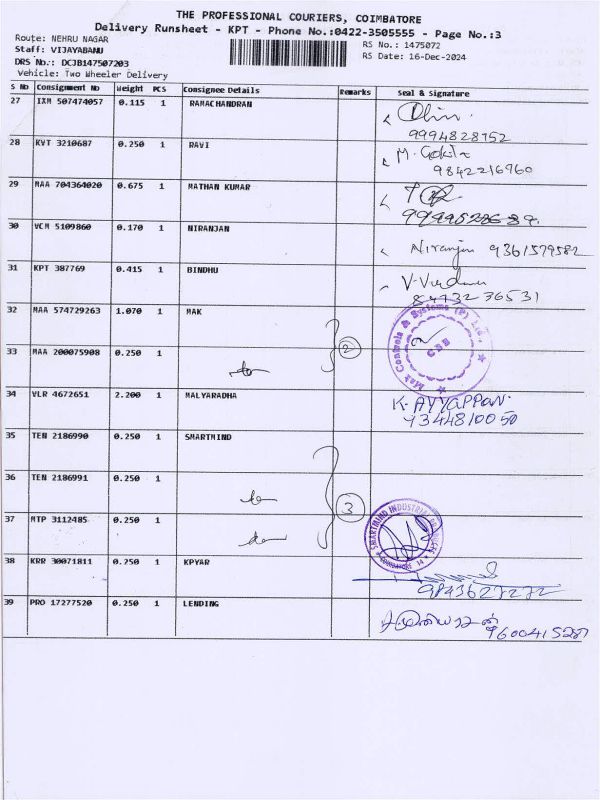 THE PROFESSIONAL COURIERS, COIMBATORE
Delivery Runsheet - KPT - Phone No.:0422-3505555 - Page No.:3
Route: NEHRU NAGAR
RS No.: 1475072
Staff: VIJAYABANU
RS Date: 16-Dec-2024
DRS No.: DCJB147507203
Vehicle: Two Wheeler Delivery
S No Consignment No Weight PCS Consignee Details Remarks Seal & Signature
27 IXM 507474057 0.115 1 RAMACHANDRAN
9994828752
28 KVT 3210687 0.250 1 RAVI M. Gokila
9842216960
29 MAA 704364020 0.675 1 MATHAN KUMAR
30 VCM 5109860 0.170 1 NIRANJAN Niranjan 9361579582
31 KPT 387769 0.415 1 BINDHU
84732 36531
32 MAA 574729263 1.070 1 MAK
Mak Controls & Systems (P) Ltd.,
CBE
33 MAA 200075908 0.250 1 2
34 VLR 4672651 2.200 1 MALYARADHA K. AYYAPPAN.
9344810050
35 TEN 2186990 0.250 1 SMARTMIND
36 TEN 2186991 0.250 1 3
37 MTP 3112485 0.250 1
SMARTMIND INDUSTRIAL
COIMBATORE
38 KRR 30071811 0.250 1 KPYAR
9843627272
39 PRO 17277520 0.250 1 LENDING
9600415287